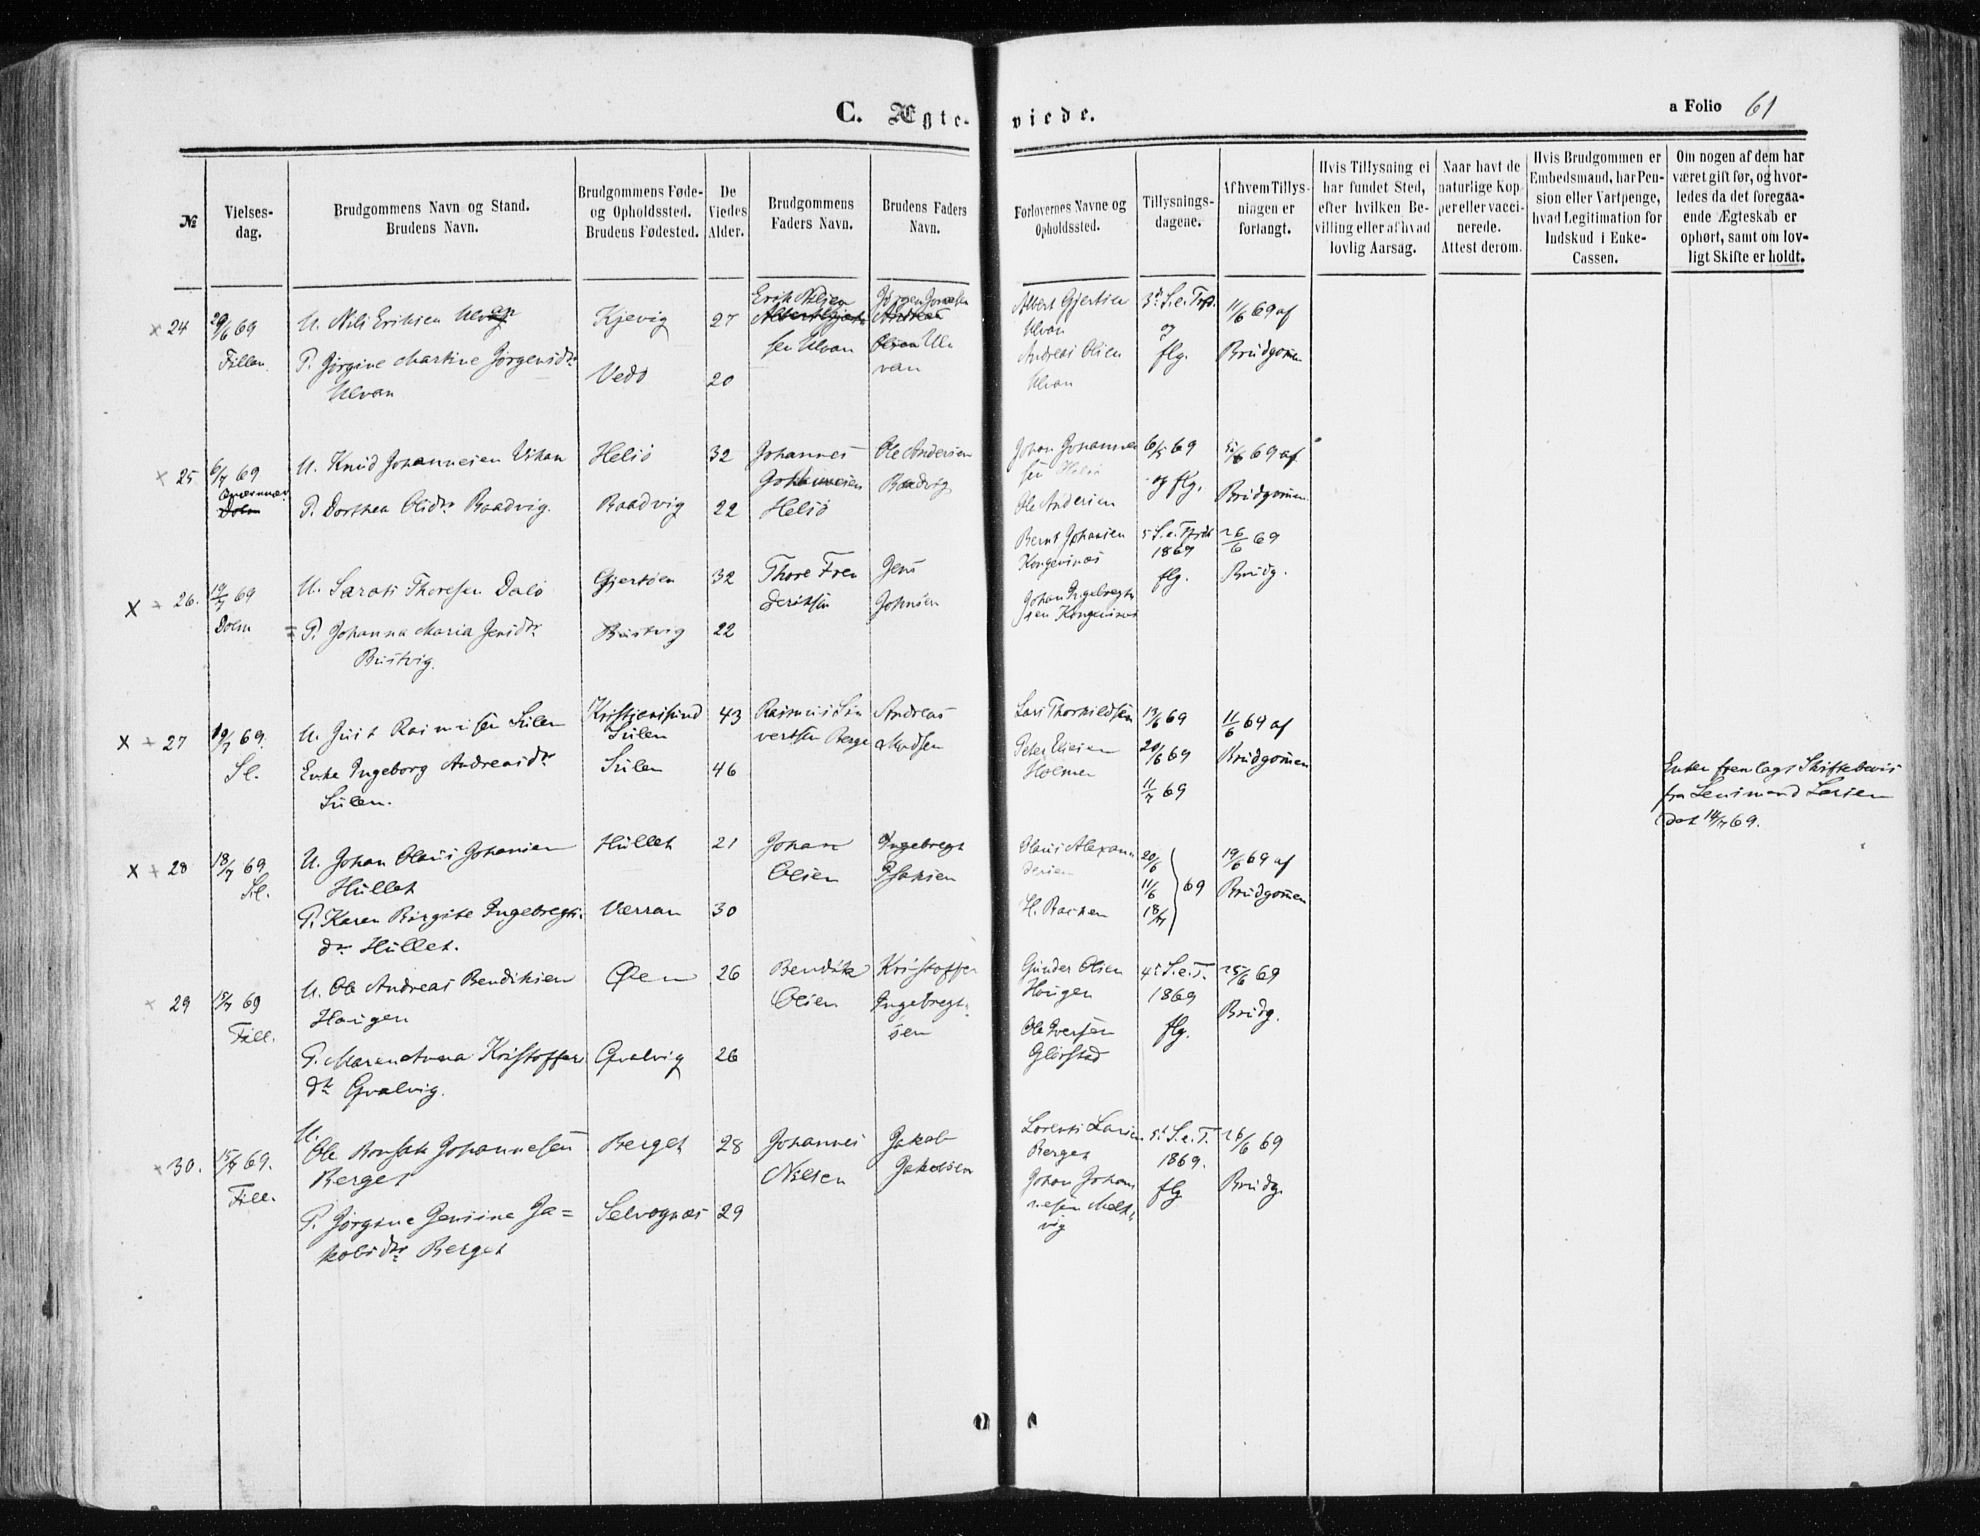 C. Ægte-
viede.
a Folio 61
№
Vielses-
dag.
Brudgommens Navn og Stand.
Brudens Navn.
Brudgommens Føde-
og Opholdssted.
Brudens Fødested.
De
Viedes
Alder.
Brudgommens
Faders Navn.
Brudens Faders
Navn.
Forlovernes Navne og
Opholdssted.
Tillysnings-
dagene.
Af hvem Tillys-
ningen er
forlangt.
Hvis Tillysning ei
har fundet Sted,
efter hvilken Be-
villing eller af hvad
lovlig Aarsag.
Naar havt de
naturlige Kop-
per eller vacci-
nerede.
Attest derom.
Hvis Brudgommen er
Embedsmand, har Pen-
sion eller Vartpenge,
hvad Legitimation for
Indskud i Enke-
Cassen.
Om nogen af dem har
været gift før, og hvor-
ledes da det foregaa-
ende Ægteskab er
ophørt, samt om lov-
ligt Skifte er holdt.
24
29/6 69
Fillan.
U. Nils Eriksen
P. Jørgine Martine Jørgensdtr
Ulvan
Kjevig
Vedø
27
20
Erik Nilsen
sen Ulvan
Jørgen
Olsen Ul
van
Albert Gjertsen
Ulvan
Andreas Olsen
Ulvan
3d S. e. Trst.
og
flg.
11/6 69 af
Brudgommen
25
6/7 69
Dolm
U. Knud Johannesen Vikan
P. Dorthea Olsdtr Raadvig.
Helsø
Raadvig
32
22
Johannes
Johannesen
Helsø
Ole Andersen
Raadvig
Johan Johannes
sen Helsø
Ole Andersen
6/5 69
og flg.
69 af
Brudgommen
26.
19/7 69
Dolm
U. Sarati Thoresen Dalø
P. Johanna Maria Jensdtr
Bustvig.
Gjertøen
Bustvig
32
22
Thore Fre
deriksen
Jens
Johnsen
Bernt Johansen
Kongensnæs
Johan Ingebregt
sen Kongensnæs
5 S. e. Tr
1869
flg.
26/6 69
Brudg.
27
19/7 69.
Sl.
U. Just Rasmussen Sulen
Enke Ingeborg Andreasdtr
Sulen.
Kristjansund
Sulen
Sulen
43
46
Rasmus Si
vertsen Berge
Andreas
Madsen
Lars Thorkildsen
Peter
Holmen
13/6 69
20/6 69
11/7 69
11/6 69 af
Brudgommen
Enken fremlagt Skiftebevis
fra Lensmand Larsen
dat 14/7 69.
28
18/7 69
Sl.
U. Johan Olaus Johansen
Hullet
P. Karen Birgite Ingebregts
dtr Hullet.
Hullet
Værran
21
30
Johan
Olsen
Ingebregt
Isaksen
Olaus Alexan
dersen
H. Backen
20/6
11/6
18/7
69
19/6 69 af
Brudgommen
29
15/7 69
Fill.
U. Ole Andreas Bendiksen
Haugen
P. Maren Anna Kristoffer
dtr Qvalvig.
Øen
Qvalvig
26
26
Bendik
Olsen
Kristoffer
Ingebregt-
sen
Gunder Olsen
Haugen
Ole Iversen
Glørstad
4d S. e. T.
1869
flg.
25/6 69
Brudg.
30.
15/7 69.
Fill.
U.
Ole Bonsak Johannesen
Berget
P. Jørgine Jensine Ja=
kobsdtr Berget
Berget
Selvognæs
28
29
Johannes
Nilsen
Jakob
Jakobsen
Lorents Larsen
Berget
Johan Johan
nesen Melk
vig
5d S. e. T.
1869.
flg
26/6 69
Brudg.